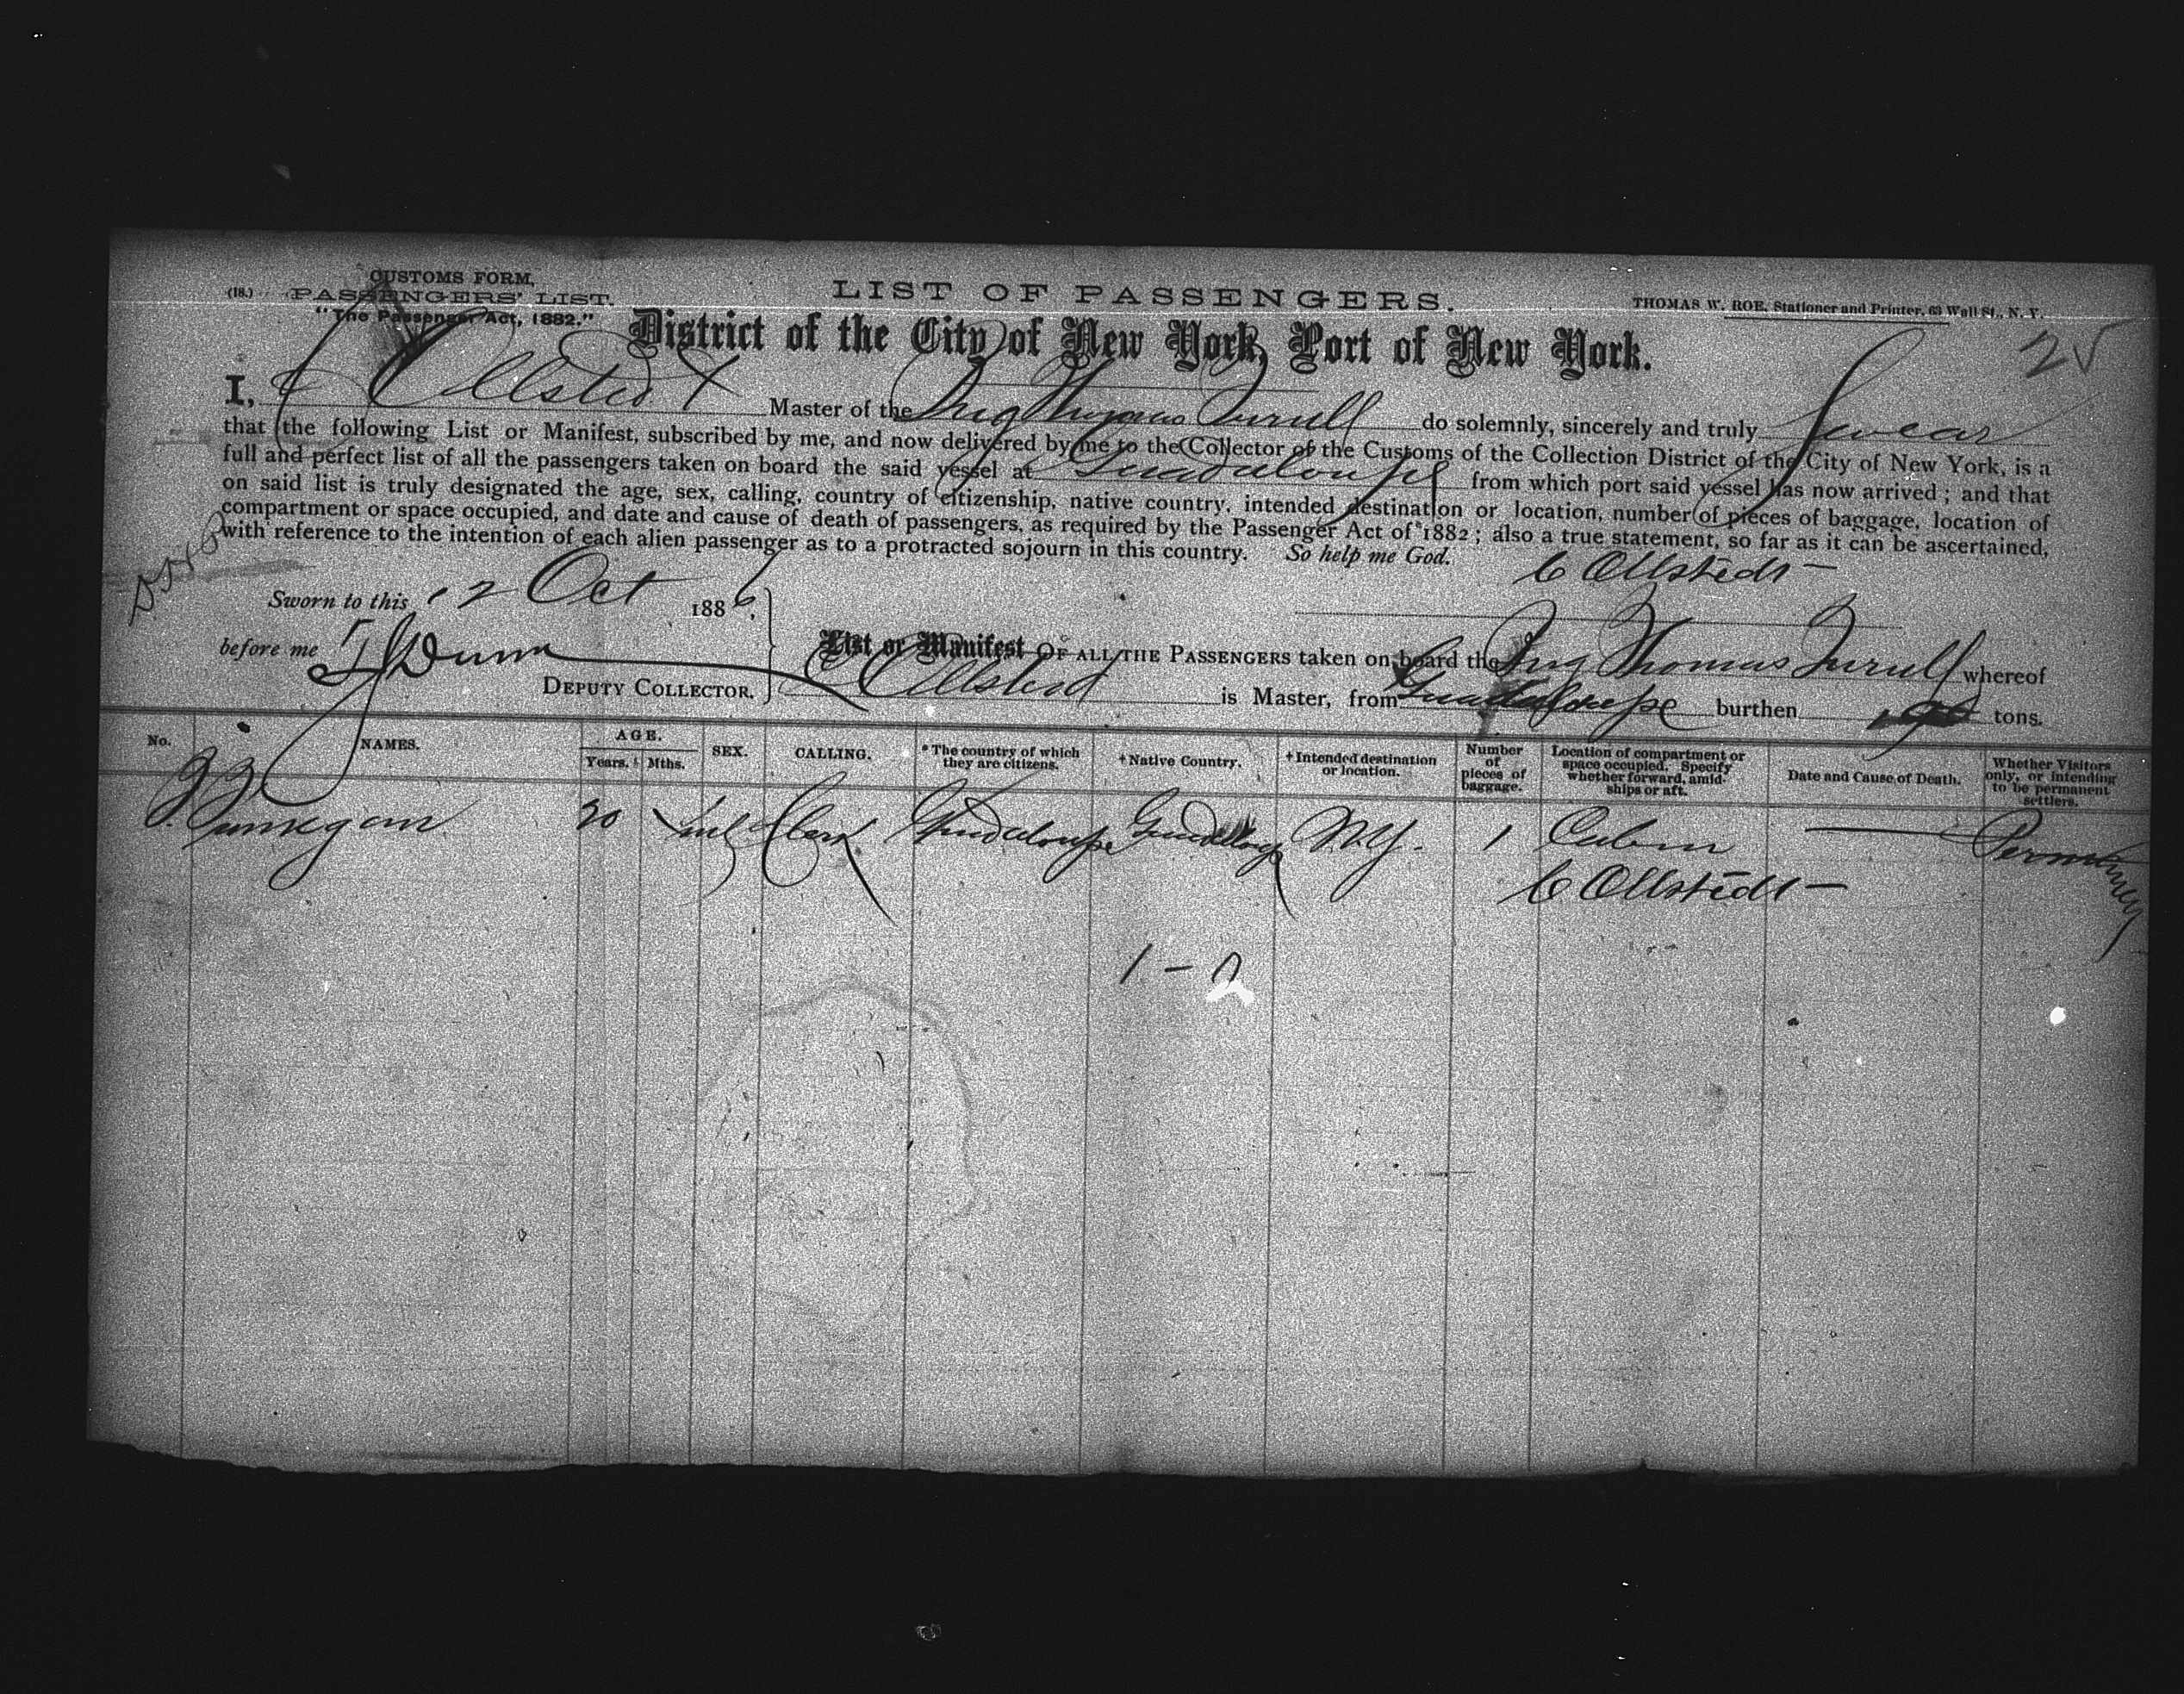 CUSTOMS FORM,
(18.) PASSENGERS' LIST.
"The Passenger Act, 1882."
LIST OF PASSENGERS.
THOMAS W. ROE, Stationer and Printer, 63 Wall St., N. Y.
District of the City of New York, Port of New York.
25
I, C Ollstedt Master of the Brig Thomas Turrull do solemnly, sincerely and truly Swear
that the following List or Manifest, subscribed by me, and now delivered by me to the Collector of the Customs of the Collection District of the City of New York, is a
full and perfect list of all the passengers taken on board the said vessel at Guadaloupe from which port said vessel has now arrived; and that
on said list is truly designated the age, sex, calling, country of citizenship, native country, intended destination or location, number of pieces of baggage, location of
compartment or space occupied, and date and cause of death of passengers, as required by the Passenger Act of 1882; also a true statement, so far as it can be ascertained,
with reference to the intention of each alien passenger as to a protracted sojourn in this country. So help me God.
C Ollstedt
Sworn to this 12 Oct 1886.
before me Dunn
DEPUTY COLLECTOR.
List or Manifest OF ALL THE PASSENGERS taken on board the Brig Thomas Turrull whereof
C Ollstedt is Master, from Guadaloupe burthen tons.
No.
NAMES.
AGE.
Years. Mths.
SEX.
CALLING.
* The country of which
they are citizens.
+ Native Country.
+ Intended destination
or location.
Number
of
pieces of
baggage.
Location of compartment or
space occupied. Specify
whether forward, amid-
ships or aft.
Date and Cause of Death.
Whether Visitors
only, or intending
to be permanent
settlers.
20 Clerk Guadaloupe Guadaloupe N.Y. 1 Cabin
C Ollstedt